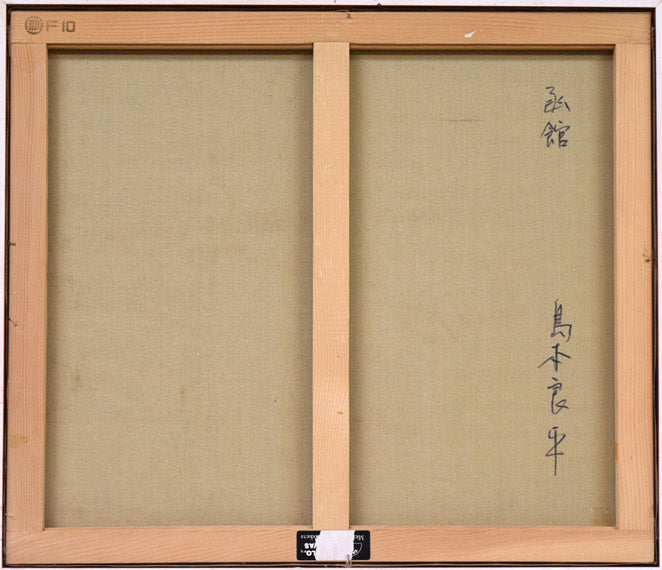 F10
函館
島本良平